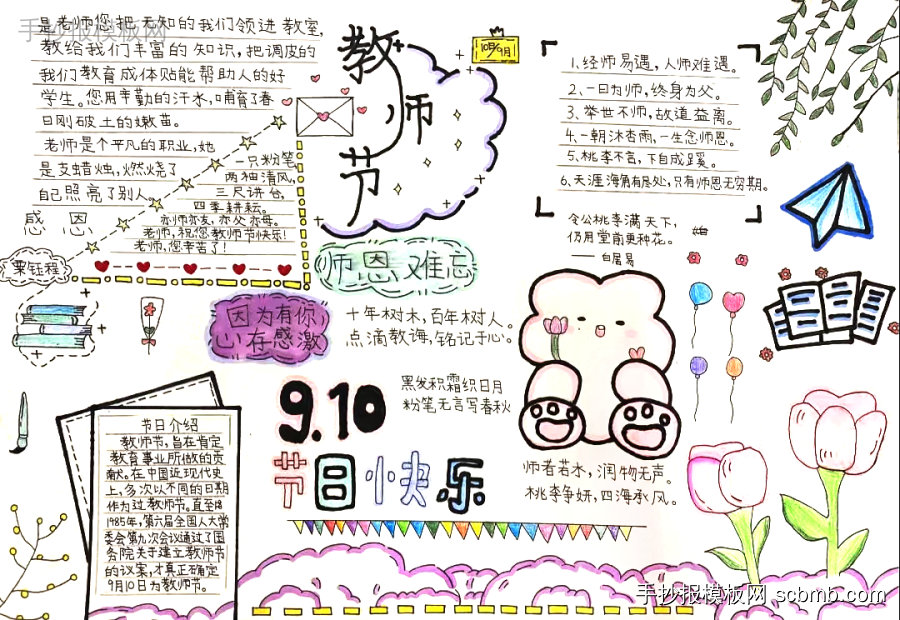 手抄报模板网
是老师您把无知的我们领进教室,
教给我们丰富的知识,把调皮的
我们教育成体贴能帮助人的好
学生。您用辛勤的汗水,哺育了春
日刚破土的嫩苗。
老师是个平凡的职业,她
是支蜡烛,燃烧了
自己照亮了别人
感恩
一只粉笔,
两袖清风,
三尺讲台,
四季耕耘。
亦师亦友,亦父亦母。
老师,祝您教师节快乐!
老师,您辛苦了!
栗钰程
教师节
1、经师易遇,人师难遭。
2、一日为师,终身为父。
3、举世不师,故道益离。
4、一朝沐杏雨,一生念师恩。
5、桃李不言,下自成蹊。
6、天涯海角有尽处,只有师恩无穷期。
令公桃李满天下,
仍用堂前更种花。
——白居易
师恩难忘
因为有你
心存感激
十年树木,百年树人。
点滴教诲,铭记于心。
9.10
黑发积霜织日月
粉笔无言写春秋
节日快乐
师者若水,润物无声。
桃李争妍,四海承风。
节日介绍
教师节,旨在肯定
教育事业所做的贡
献。在中国近现代史
上,多次以不同的日期
作为过教师节。直至
1985年,第六届全国人大常
委会第九次会议通过了国
务院关于建立教师节
的议案,才真正确定
9月10日为教师节。
手抄报模板网 scbmb.com